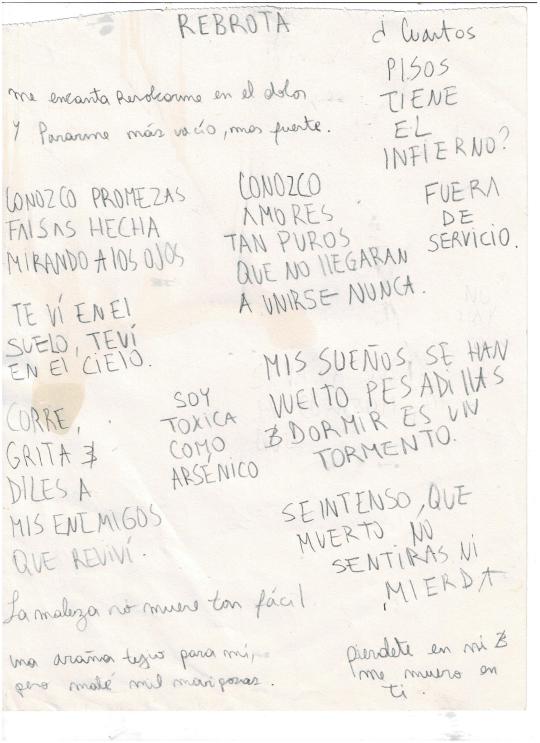 REBROTA
¿Cuantos
PISOS
TIENE
EL
INFIERNO?
me encanta Revolcarme en el dolor
Y Pararme más vacío, mas fuerte.
CONOZCO PROMEZAS
FAlSAS HECHA
MIRANDO A lOS OJOS
CONOZCO
AMORES
TAN PUROS
QUE NO llEGARAN
A UNIRSE NUNCA.
FUERA
DE
SERVICIO.
TE VÍ EN El
SUELO, TE VÍ
EN El CIElO.
MIS SUEÑOS, SE HAN
VUElTO PESADIllAS
DORMIR ES UN
TORMENTO.
CORRE,
GRITA &
DILES A
MIS ENEMIGOS
QUE REVIVÍ.
SOY
TOXICA
COMO
ARSENICO
SE INTENSO, QUE
MUERTO NO
SENTIRAS NI
MIERDA
La maleza no muere tan fácil
una araña tejio para mí,
pero maté mil mariposas.
pierdete en mi &
me muero en
ti.